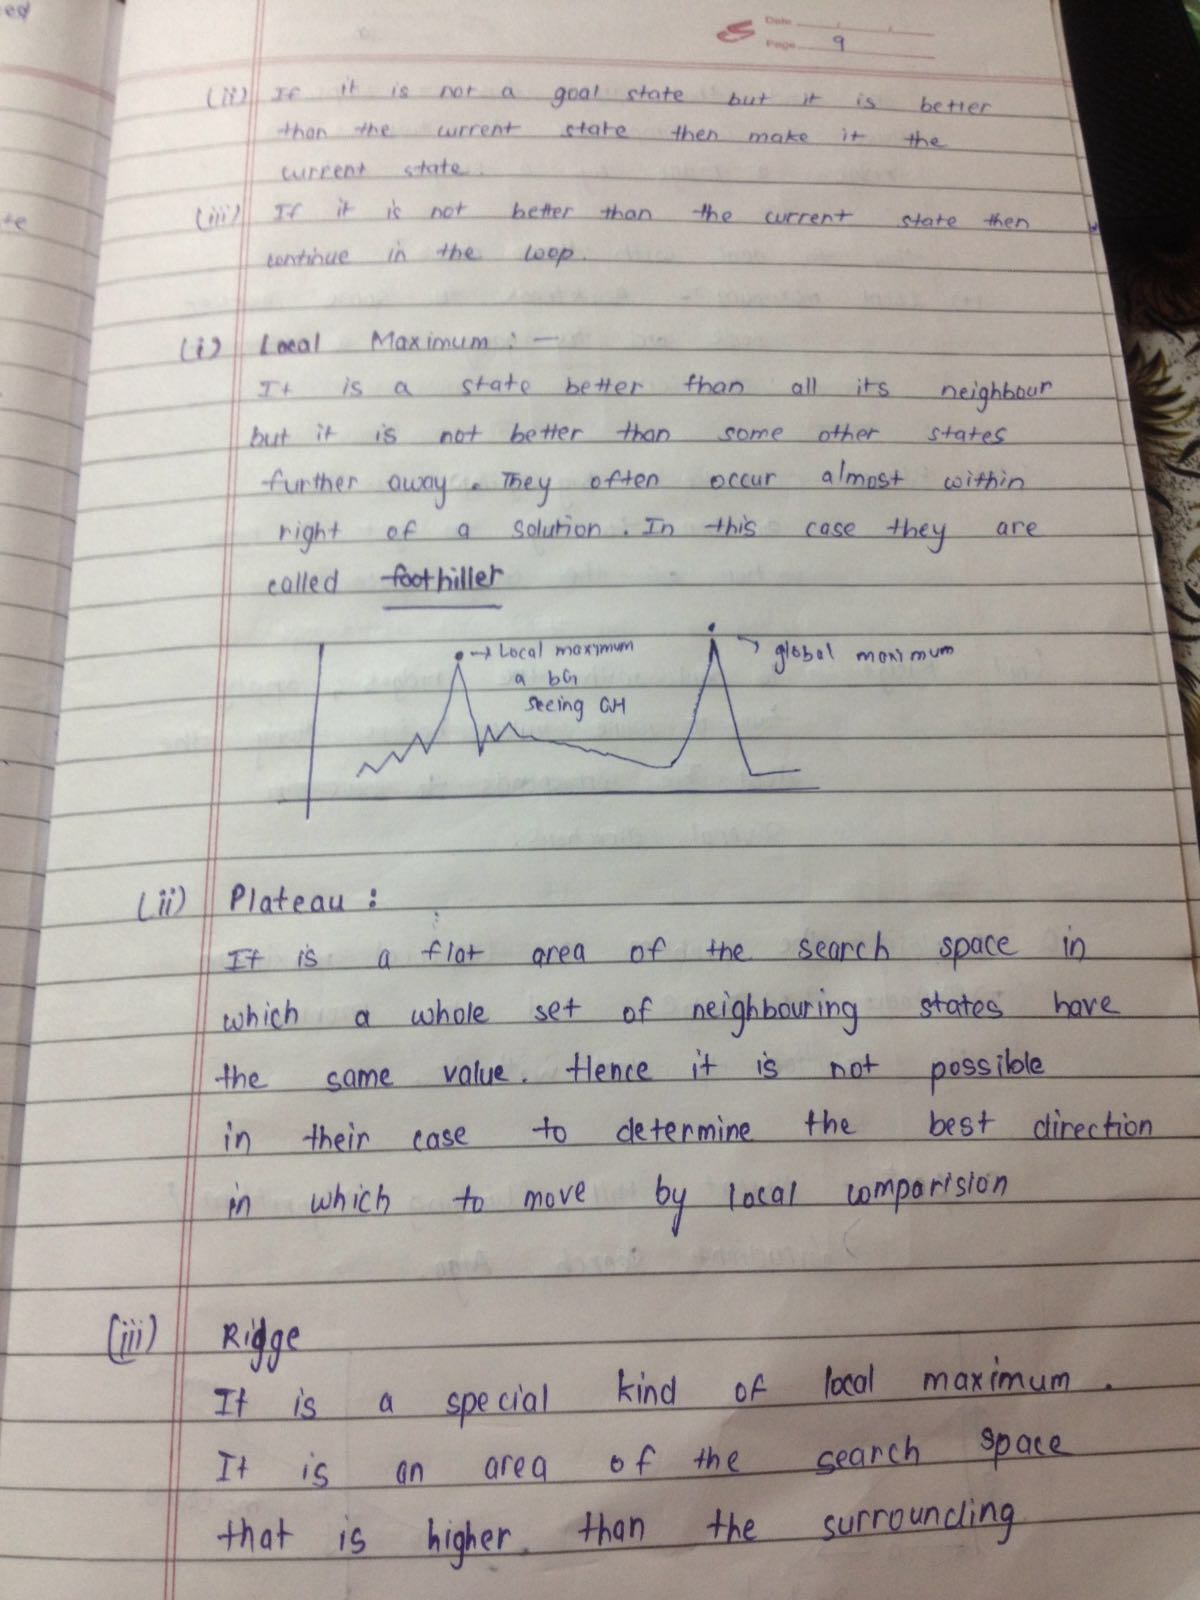 ed
te
Date
Page 9
(ii) If it is not a goal state but it is better
than the current state then make it the
current state.
(iii) If it is not better than the current state then
continue in the loop.
(i) Local Maximum : —
It is a state better than all its neighbour
but it is not better than some other states
further away. They often occur almost within
right of a solution. In this case they are
called foothiller
→ Local maximum
a
seeing GH
→ global maximum
(ii) Plateau :
It is a flat area of the search space in
which a whole set of neighbouring states have
the same value. Hence it is not possible
in their case to determine the best direction
in which to move by local comparision
(iii) Ridge
It is a special kind of local maximum.
It is an area of the search space
that is higher than the surrounding